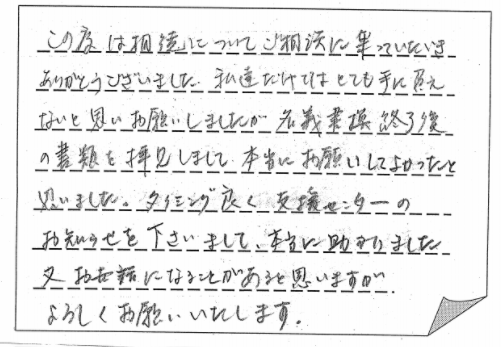 この度は相続についてご相談に乗っていただき
ありがとうございました。私達だけではとても手に負え
ないと思いお願いしましたが名義書換終了後
の書類を拝見しまして、本当にお願いしてよかったと
思いました。タイミング良く支援センターの
お知らせを下さいまして、本当に助かりました
又お世話になることがあると思いますが、
よろしくお願いいたします。